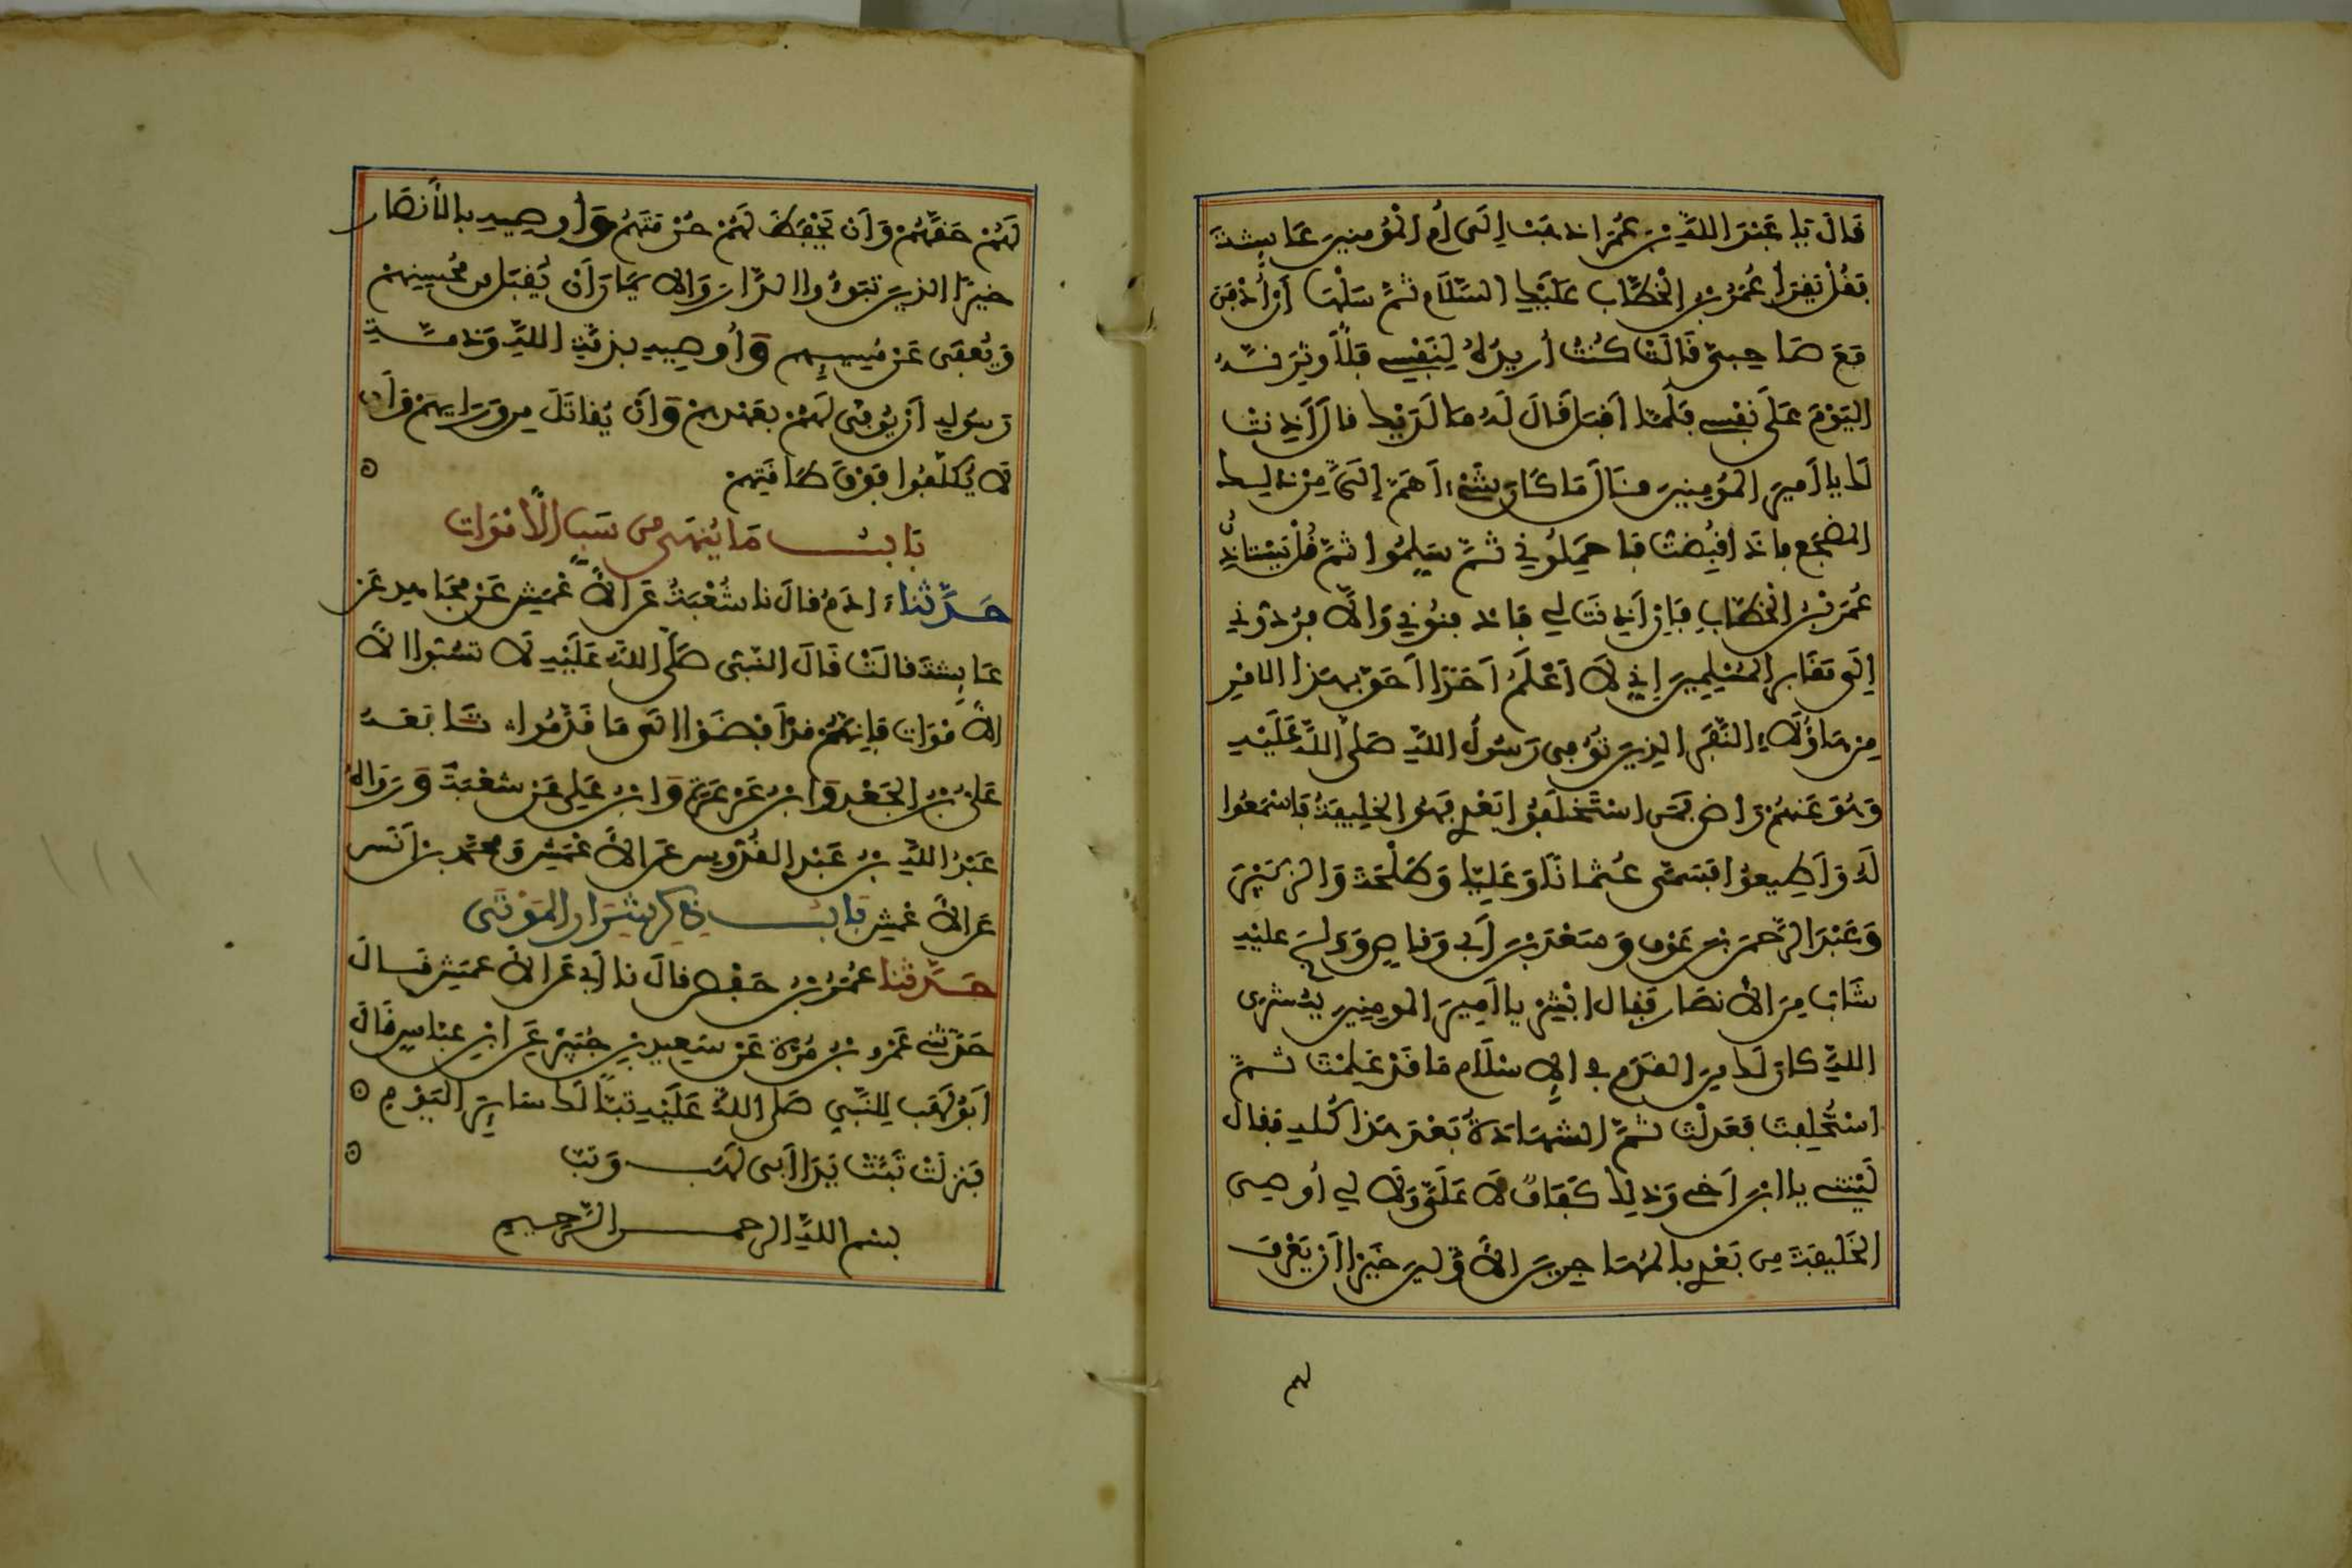 قَالَ يَا عَبْدَ اللَّهِ بْنَ عُمَرَ اذْهَبْ إِلَى أُمِّ الْمُؤْمِنِينَ عَائِشَةَ
فَقُلْ يَقْرَأُ عُمَرُ بْنُ الْخَطَّابِ عَلَيْكِ السَّلَامَ ثُمَّ سَلْهَا أَنْ أُدْفَنَ
مَعَ صَاحِبَيَّ قَالَتْ كُنْتُ أُرِيدُهُ لِنَفْسِي فَلَأُوثِرَنَّهُ
الْيَوْمَ عَلَى نَفْسِي فَلَمَّا أَقْبَلَ قَالَ لَهُ مَا لَدَيْكَ قَالَ أَذِنَتْ
لَكَ يَا أَمِيرَ الْمُؤْمِنِينَ قَالَ مَا كَانَ شَيْءٌ أَهَمَّ إِلَيَّ مِنْ ذَلِكَ
الْمَضْجَعِ فَإِذَا قُبِضْتُ فَاحْمِلُونِي ثُمَّ سَلِّمُوا ثُمَّ قُلْ يَسْتَأْذِنُ
عُمَرُ بْنُ الْخَطَّابِ فَإِنْ أَذِنَتْ لِي فَادْفِنُونِي وَإِلَّا فَرُدُّونِي
إِلَى مَقَابِرِ الْمُسْلِمِينَ إِنِّي لَا أَعْلَمُ أَحَدًا أَحَقَّ بِهَذَا الْأَمْرِ
مِنْ هَؤُلَاءِ النَّفَرِ الَّذِينَ تُوُفِّيَ رَسُولُ اللَّهِ صَلَّى اللَّهُ عَلَيْهِ
وَهُوَ عَنْهُمْ رَاضٍ فَمَنِ اسْتَخْلَفُوا بَعْدِي فَهُوَ الْخَلِيفَةُ فَاسْمَعُوا
لَهُ وَأَطِيعُوا فَسَمَّى عُثْمَانَ وَعَلِيًّا وَطَلْحَةَ وَالزُّبَيْرَ
وَعَبْدَ الرَّحْمَنِ بْنَ عَوْفٍ وَسَعْدَ بْنَ أَبِي وَقَّاصٍ وَوَلَجَ عَلَيْهِ
شَابٌّ مِنَ الْأَنْصَارِ فَقَالَ أَبْشِرْ يَا أَمِيرَ الْمُؤْمِنِينَ بِبُشْرَى
اللَّهِ كَانَ لَكَ مِنَ الْقَدَمِ فِي الْإِسْلَامِ مَا قَدْ عَلِمْتَ ثُمَّ
اسْتُخْلِفْتَ فَعَدَلْتَ ثُمَّ الشَّهَادَةُ بَعْدَ هَذَا كُلِّهِ فَقَالَ
لَيْتَنِي يَا ابْنَ أَخِي وَذَلِكَ كَفَافٌ لَا عَلَيَّ وَلَا لِي أُوصِي
الْخَلِيفَةَ مِنْ بَعْدِي بِالْمُهَاجِرِينَ الْأَوَّلِينَ خَيْرًا أَنْ يَعْرِفَ
لهم
لَهُمْ حَقَّهُمْ وَأَنْ يَحْفَظَ لَهُمْ حُرْمَتَهُمْ وَأُوصِيهِ بِالْأَنْصَارِ
خَيْرًا الَّذِينَ تَبَوَّءُوا الدَّارَ وَالْإِيمَانَ أَنْ يُقْبَلَ مِنْ مُحْسِنِهِمْ
وَيُعْفَى عَنْ مُسِيئِهِمْ وَأُوصِيهِ بِذِمَّةِ اللَّهِ وَذِمَّةِ
رَسُولِهِ أَنْ يُوفَى لَهُمْ بِعَهْدِهِمْ وَأَنْ يُقَاتَلَ مِنْ وَرَائِهِمْ وَأَنْ
لَا يُكَلَّفُوا فَوْقَ طَاقَتِهِمْ
بَابُ مَا يُنْهَى مِنْ سَبِّ الْأَمْوَاتِ
حَدَّثَنَا ءَادَمُ قَالَ نَا شُعْبَةُ عَنِ الْأَعْمَشِ عَنْ مُجَاهِدٍ عَنْ
عَائِشَةَ قَالَتْ قَالَ النَّبِيُّ صَلَّى اللَّهُ عَلَيْهِ لَا تَسُبُّوا الْأَ
الْأَمْوَاتَ فَإِنَّهُمْ قَدْ أَفْضَوْا إِلَى مَا قَدَّمُوا تَابَعَهُ
عَلِيُّ بْنُ الْجَعْدِ وَابْنُ عَرْعَرَةَ وَابْنُ عَدِيٍّ عَنْ شُعْبَةَ وَرَوَاهُ
عَبْدُ اللَّهِ بْنُ عَبْدِ الْقُدُّوسِ عَنِ الْأَعْمَشِ وَمُحَمَّدُ بْنُ أَنَسٍ
عَنِ الْأَعْمَشِ بَابُ ذِكْرِ شِرَارِ الْمَوْتَى
حَدَّثَنَا عُمَرُ بْنُ حَفْصٍ قَالَ نَا أَبِي عَنِ الْأَعْمَشِ قَالَ
حَدَّثَنِي عَمْرُو بْنُ مُرَّةَ عَنْ سَعِيدِ بْنِ جُبَيْرٍ عَنِ ابْنِ عَبَّاسٍ قَالَ
أَبُو لَهَبٍ لِلنَّبِيِّ صَلَّى اللَّهُ عَلَيْهِ تَبًّا لَكَ سَائِرَ الْيَوْمِ
فَنَزَلَتْ تَبَّتْ يَدَا أَبِي لَهَبٍ وَتَبَّ
بِسْمِ اللَّهِ الرَّحْمَنِ الرَّحِيمِ